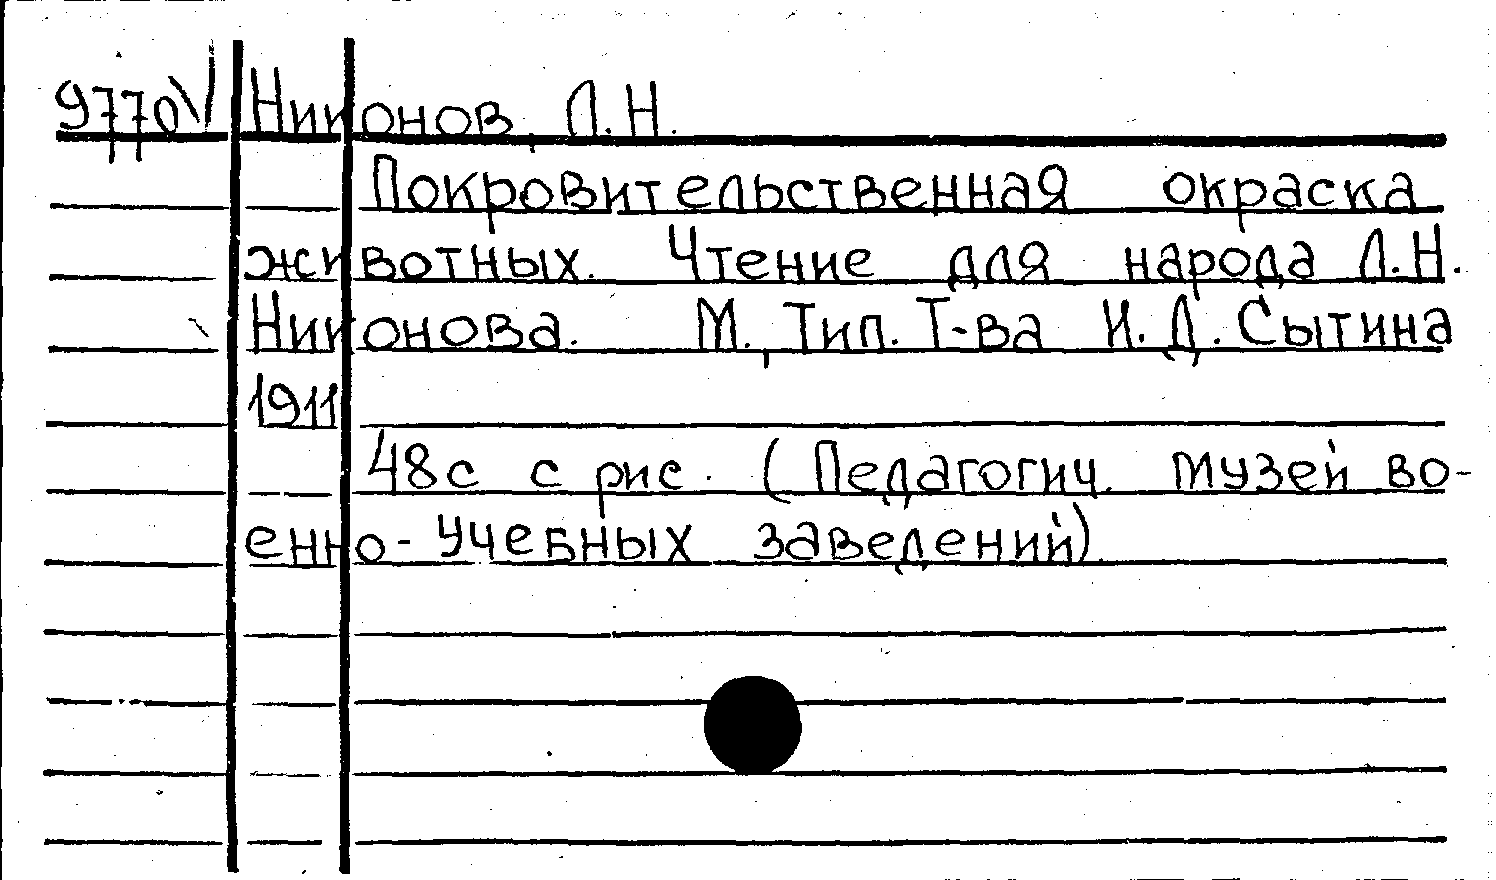 9770V Никонов, Л.Н.
Покровительственная окраска
животных. Чтение для народа Л.Н.
Никонова. М., Тип. Т-ва И.Д. Сытина
1911
48с с рис. (Педагогич. музей во-
енно-учебных заведений).